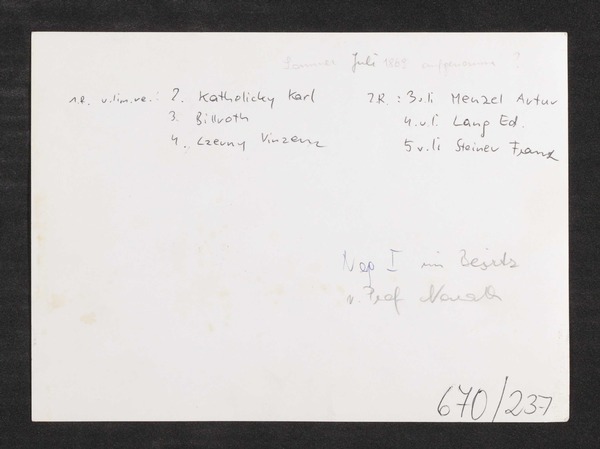 Sommer Juli 1869 aufgenommen ?
1.R. v.li.n.re.: 2. Katholicky Karl
3. Billroth
4. Czerny Vinzenz
2.R.: 3 v.li Menzel Artur
4.v.li. Lang Ed.
5 v.li Steiner Franz
Neg I im Besitz
v. Prof
670/237